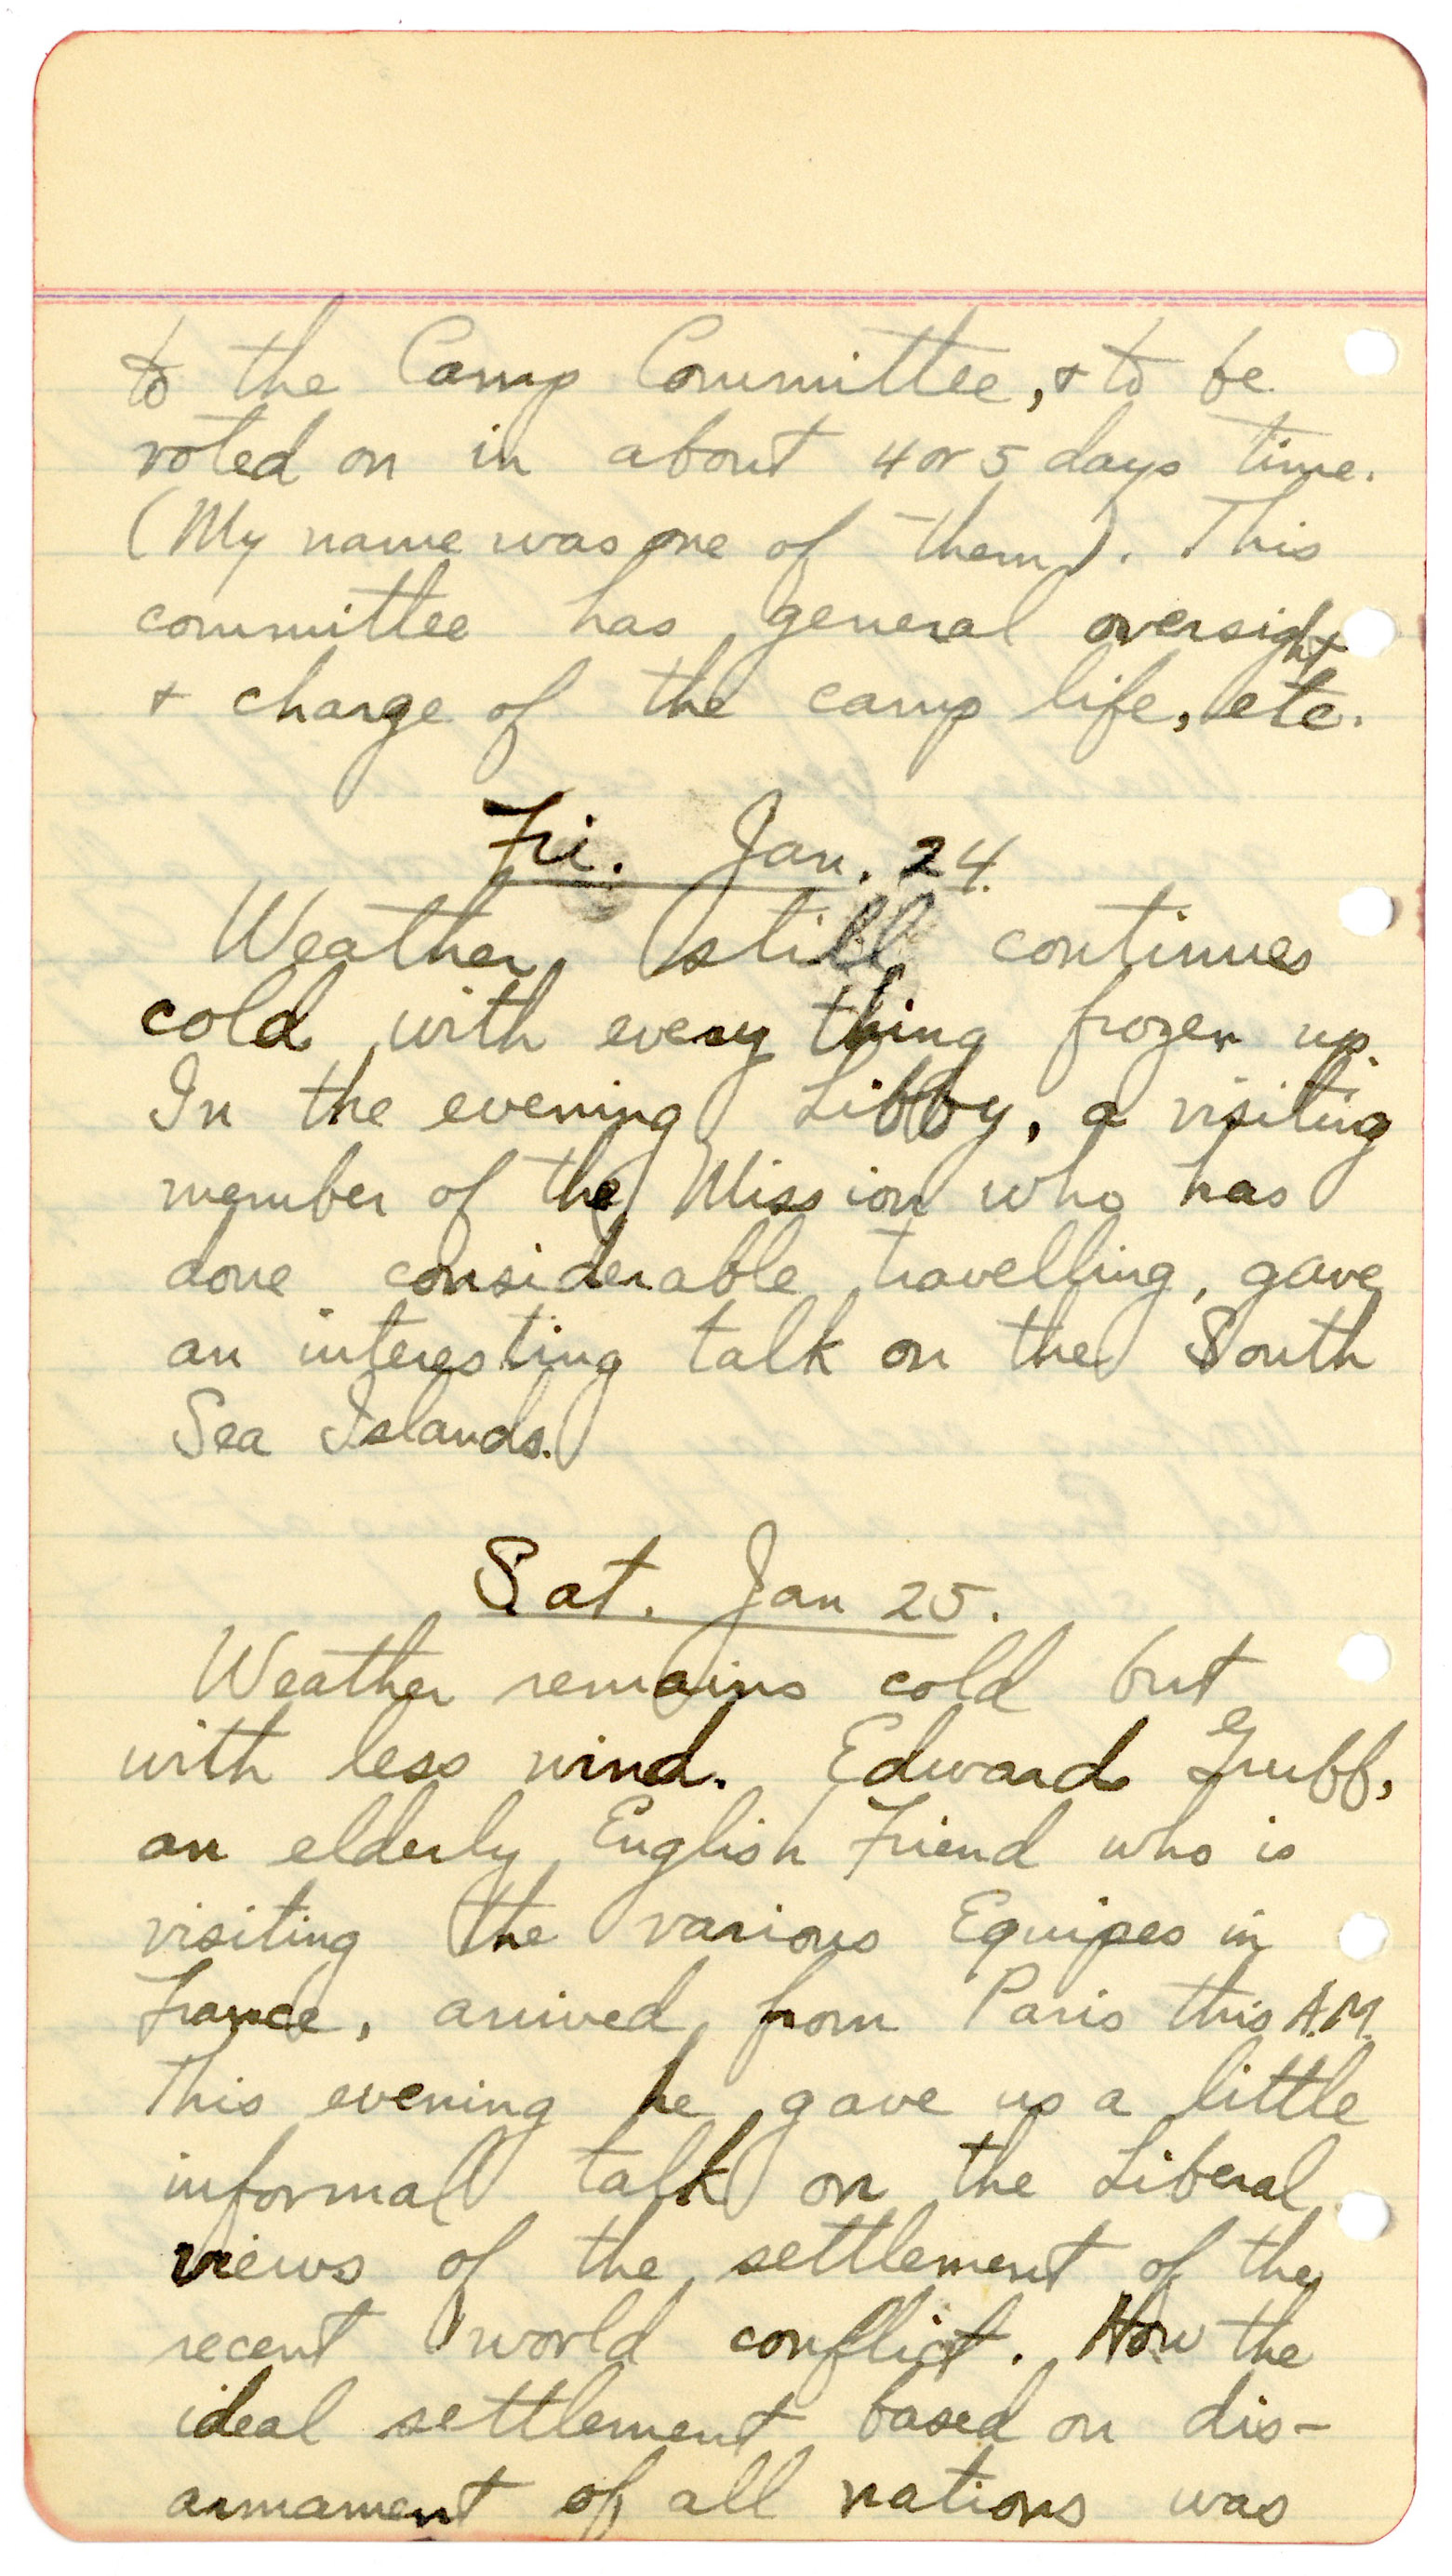 to the Camp Committee, & to be
voted on in about 4 or 5 days time.
(My name was one of them). This
committee has general oversight
& charge of the camp life, etc.
Fri. Jan. 24.
Weather still continues
cold with every thing frozen up.
In the evening Libby, a visiting
member of the Mission who has
done considerable travelling, gave
an interesting talk on the South
Sea Islands.
Sat. Jan 25.
Weather remains cold but
with less wind. Edward Grubb,
an elderly English Friend who is
visiting the various Equipes in
France, arrived from Paris this A.M.
This evening he gave us a little
informal talk on the Liberal
views of the settlement of the
recent world conflict. How the
ideal settlement based on dis-
armament of all nations was